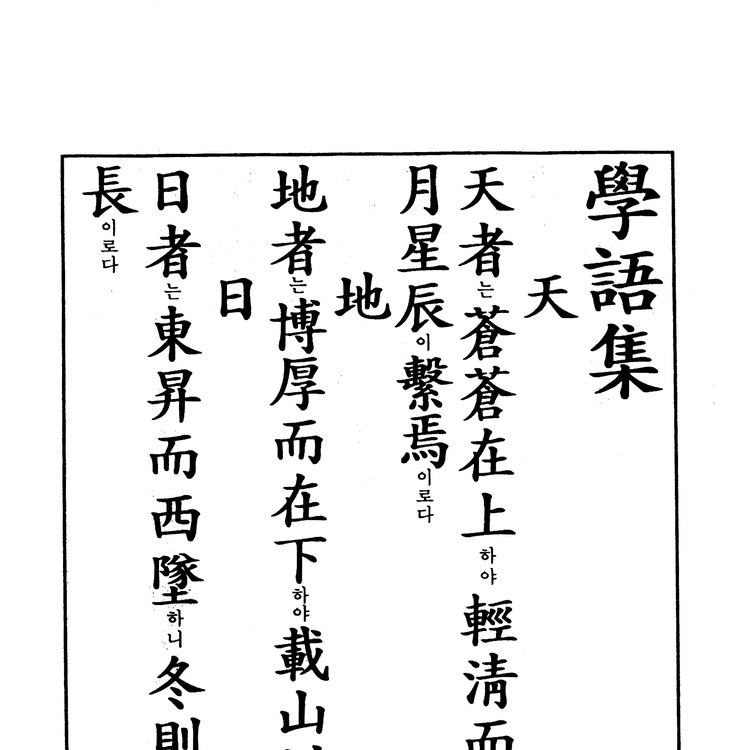 學語集
天
天者는蒼蒼在上하야輕淸而
月星辰이繫焉이로다
地
地者는博厚而在下하야載山
日
日者는東昇而西墜하니冬則
長이로다